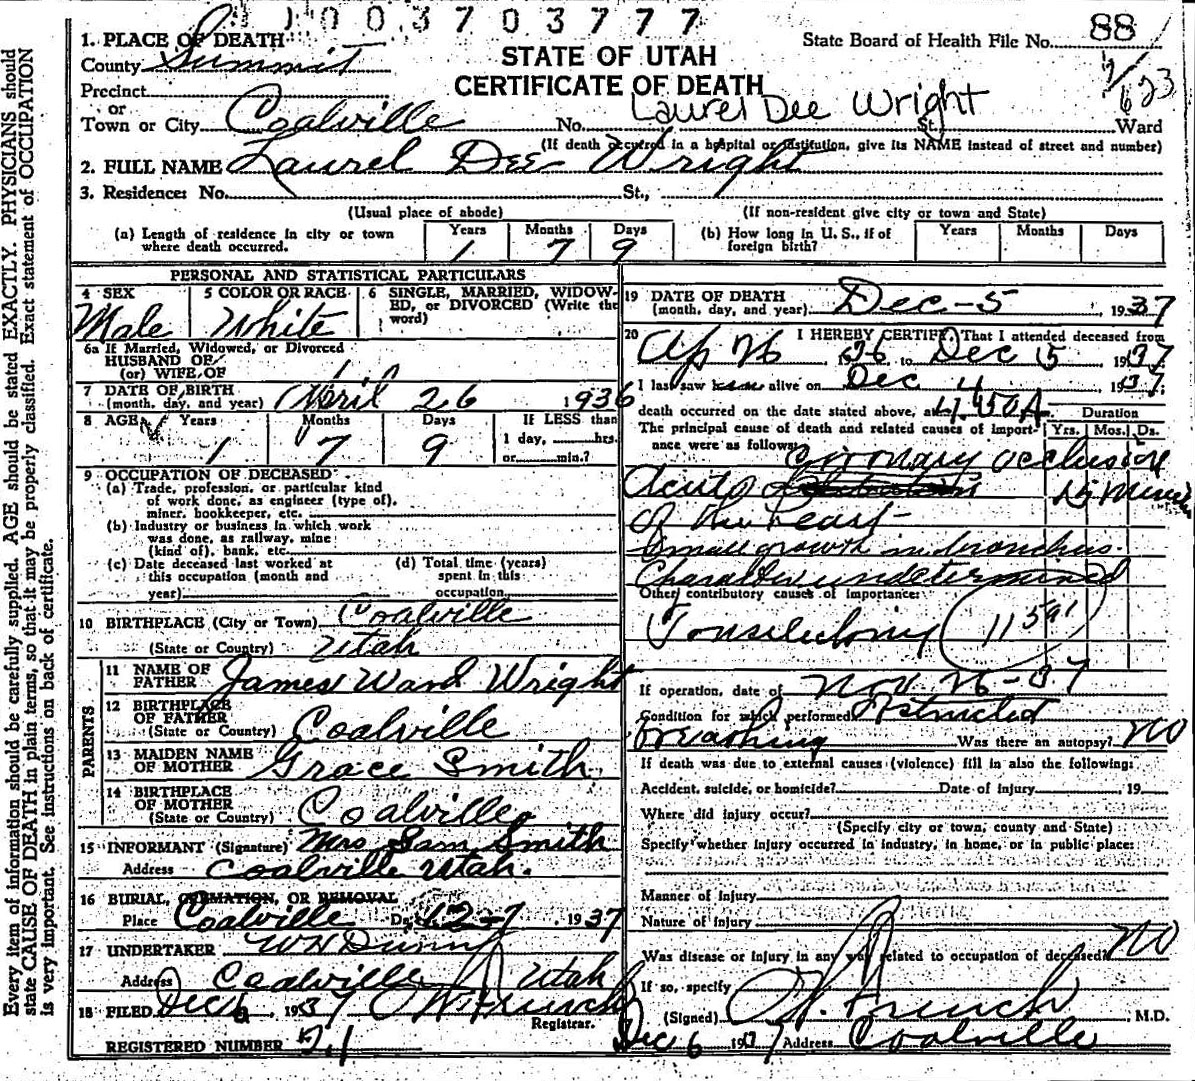 1 0 0 3 7 0 3 7 7 7
88
1. PLACE OF DEATH
STATE OF UTAH
State Board of Health File No.
County Summit
CERTIFICATE OF DEATH
Precinct
or
Laurel Dee Wright
Town or City Coalville No. St. Ward
(If death occurred in a hospital or institution, give its NAME instead of street and number)
2. FULL NAME Laurel Dee Wright
3. Residence: No. St.,
(Usual place of abode) (If non-resident give city or town and State)
(a) Length of residence in city or town where death occurred. Years 1 Months 7 Days 9
(b) How long in U. S., if of foreign birth? Years Months Days
PERSONAL AND STATISTICAL PARTICULARS
4 SEX Male
5 COLOR OR RACE White
6 SINGLE, MARRIED, WIDOWED, or DIVORCED (Write the word)
6a If Married, Widowed, or Divorced
HUSBAND OF
(or) WIFE OF
7 DATE OF BIRTH
(month, day, and year) April 26 1936
8 AGE Years 1 Months 7 Days 9
IF LESS than
1 day, hrs.
or min.?
9 OCCUPATION OF DECEASED:
(a) Trade, profession, or particular kind
of work done, as engineer (type of),
miner, bookkeeper, etc.
(b) Industry or business in which work
was done, as railway, mine
(kind of), bank, etc.
(c) Date deceased last worked at
this occupation (month and
year)
(d) Total time (years)
spent in this
occupation
10 BIRTHPLACE (City or Town) Coalville
(State or County) Utah
PARENTS
11 NAME OF
FATHER James Ward Wright
12 BIRTHPLACE
OF FATHER
(State or Country) Coalville
13 MAIDEN NAME
OF MOTHER Grace Smith
14 BIRTHPLACE
OF MOTHER
(State or Country) Coalville
15 INFORMANT (Signature) Mrs Sam Smith
Address Coalville Utah.
16 BURIAL, CREMATION, OR REMOVAL
Place Coalville Date 12-7 1937
17 UNDERTAKER
Address Coalville Utah
18 FILED Dec 6 1937
Registrar.
REGISTERED NUMBER 21
19 DATE OF DEATH
(month, day, and year) Dec-5, 1937
20 I HEREBY CERTIFY, That I attended deceased from
Ap 26 1936 to Dec 5 1937
I last saw him alive on Dec 4 1937
death occurred on the date stated above, at 4.50A Duration
The principal cause of death and related causes of importance were as follows: Yrs. Mos. Ds.
Coronary occlusion
Acute
of the heart
Small growth in bronchus.
Character undetermined
Other contributory causes of importance:
Tonsilectomy
If operation, date of Nov 26-37
Condition for which performed Obstructed
breathing Was there an autopsy? No
If death was due to external causes (violence) fill in also the following:
Accident, suicide, or homicide? Date of injury 19
Where did injury occur?
(Specify city or town, county and State)
Specify whether injury occurred in industry, in home, or in public place:
Manner of injury
Nature of injury
Was disease or injury in any way related to occupation of deceased? No
If so, specify
(Signed) M.D.
Dec 6 1937 Address Coalville
Every item of information should be carefully supplied. AGE should be stated EXACTLY. PHYSICIANS should
state CAUSE OF DEATH in plain terms, so that it may be properly classified. Exact statement of OCCUPATION
is very important. See instructions on back of certificate.